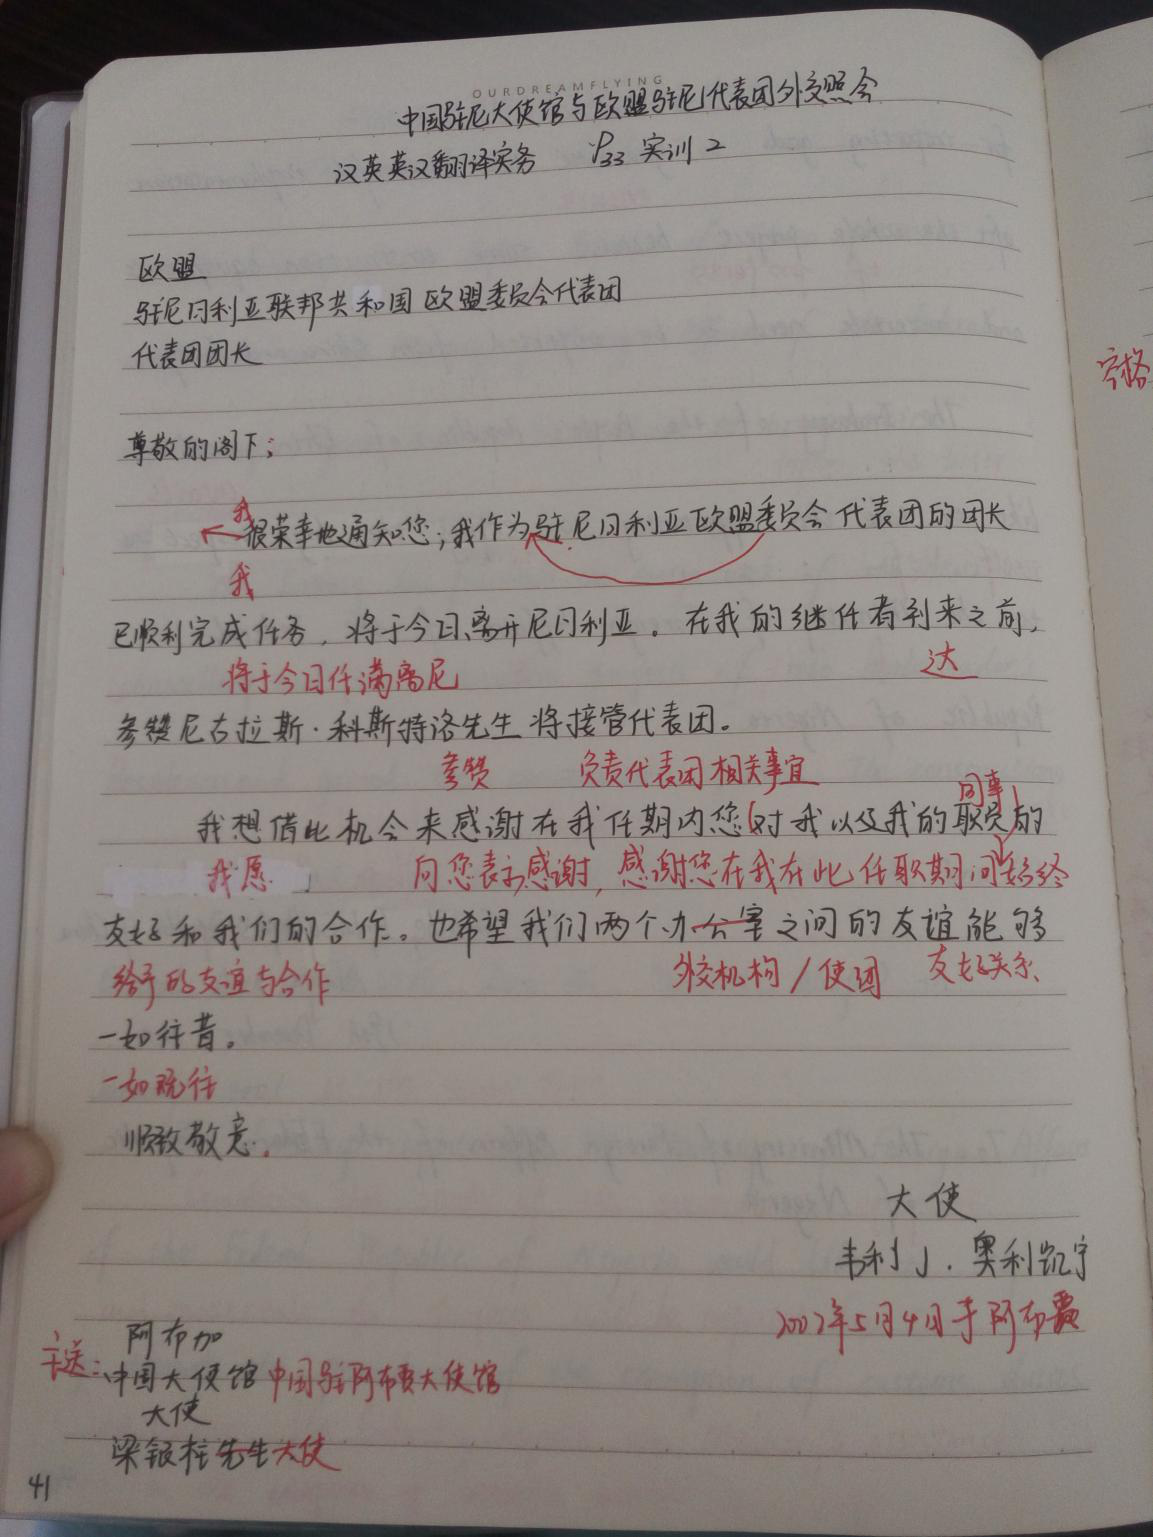 OURDREAMFLYING
中国驻尼大使馆与欧盟驻尼代表团外交照会
汉英英汉翻译实务 P33 实训2
欧盟
驻尼日利亚联邦共和国欧盟委员会代表团
代表团团长
空格
尊敬的阁下:
我
很荣幸地通知您,我作为驻尼日利亚欧盟委员会代表团的团长
我
已顺利完成任务,将于今日离开尼日利亚。在我的继任者到来之前,
将于今日任满离尼 达
参赞尼古拉斯·科斯特洛先生将接管代表团。
参赞 负责代表团相关事宜
同事
我想借此机会来感谢在我任期内您对我以及我的职员的
我愿 向您表示感谢,感谢您在我在此任职期间始终
友好和我们的合作。也希望我们两个办公室之间的友谊能够
给予的友谊与合作 外交机构/使团 友好关系
一如往昔。
一如既往
顺致敬意.
大使
韦利J.奥利凯宁
2002年5月4日于阿布贾
阿布加
主送:中国大使馆 中国驻阿布贾大使馆
大使
梁银柱先生大使
41